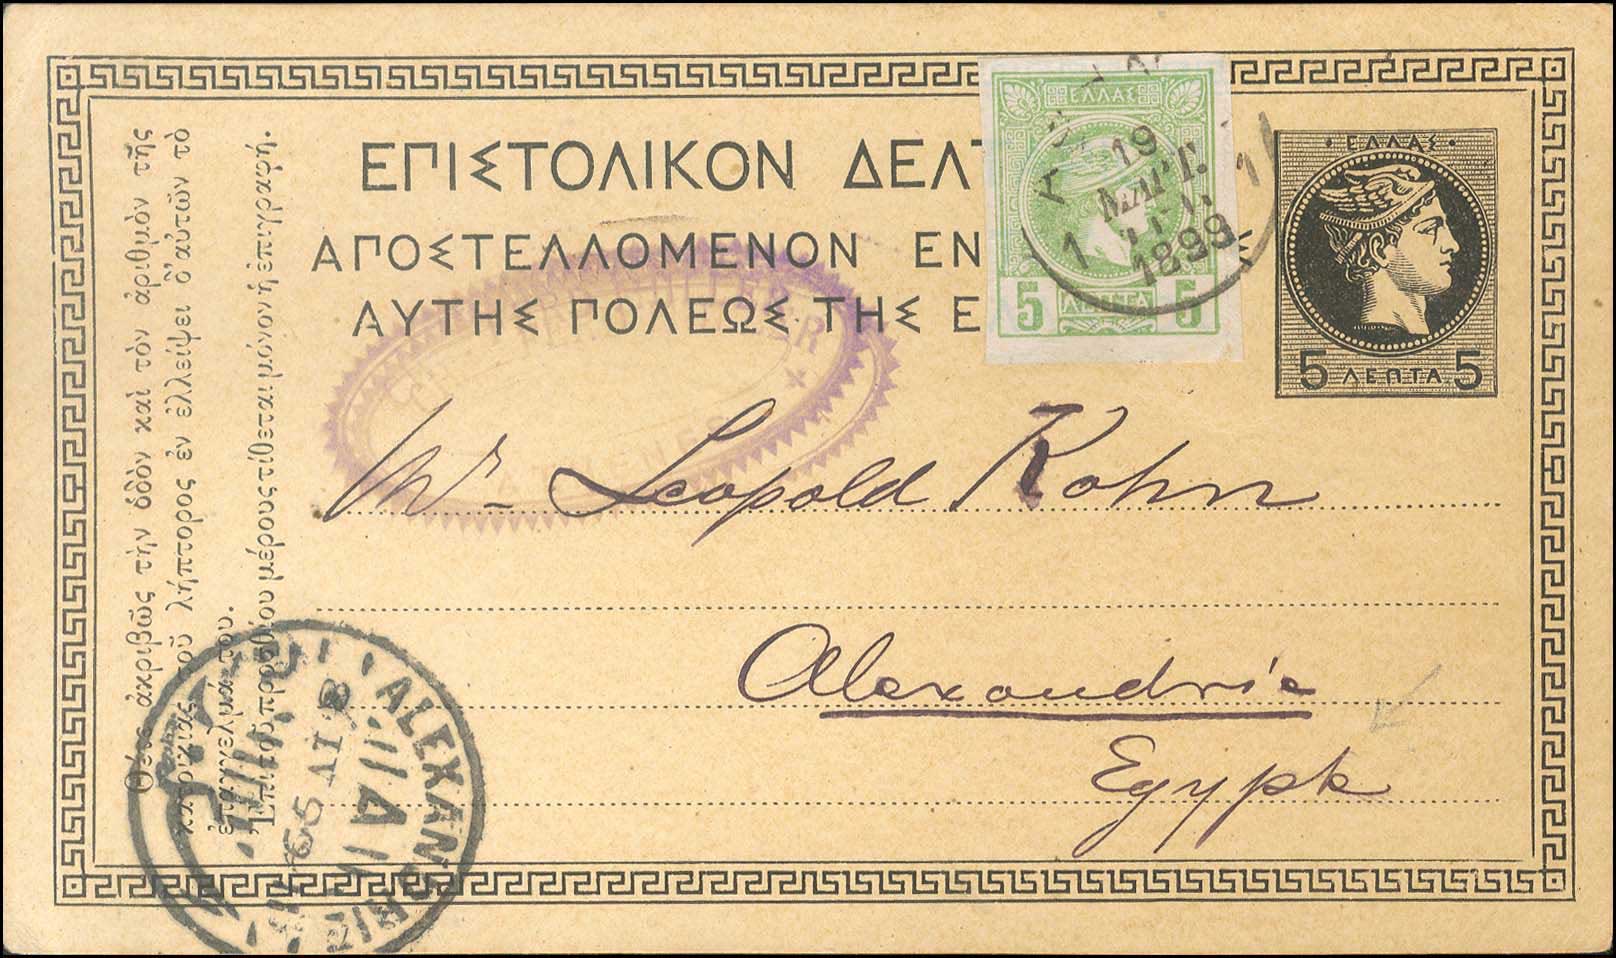 ΕΠΙΣΤΟΛΙΚΟΝ ΔΕΛΤ
ΑΠΟΣΤΕΛΛΟΜΕΝΟΝ ΕΝ
ΑΥΤΗΣ ΠΟΛΕΩΣ ΤΗΣ Ε
ΕΛΛΑΣ
5 ΛΕΠΤΑ 5
19
ΜΑΡΤ.
1899
ΕΛΛΑΣ
5 ΛΕΠΤΑ 5
Mr Leopold Kohn
Alexandrie
Egypt
Θέτε ἀκριβῶς τὴν ὁδὸν καὶ τὸν ἀριθμὸν τῆς
κατοικίας τοῦ λήπτορος ἐν ἐλλείψει δ' αὐτῶν τὸ
ἐπάγγελμά του.
Ἐπὶ τοῦ προσθίου μέρους τίθεται μόνον ἡ ἐπιγραφή.
ALEXANDRIE
A
8 IV 99